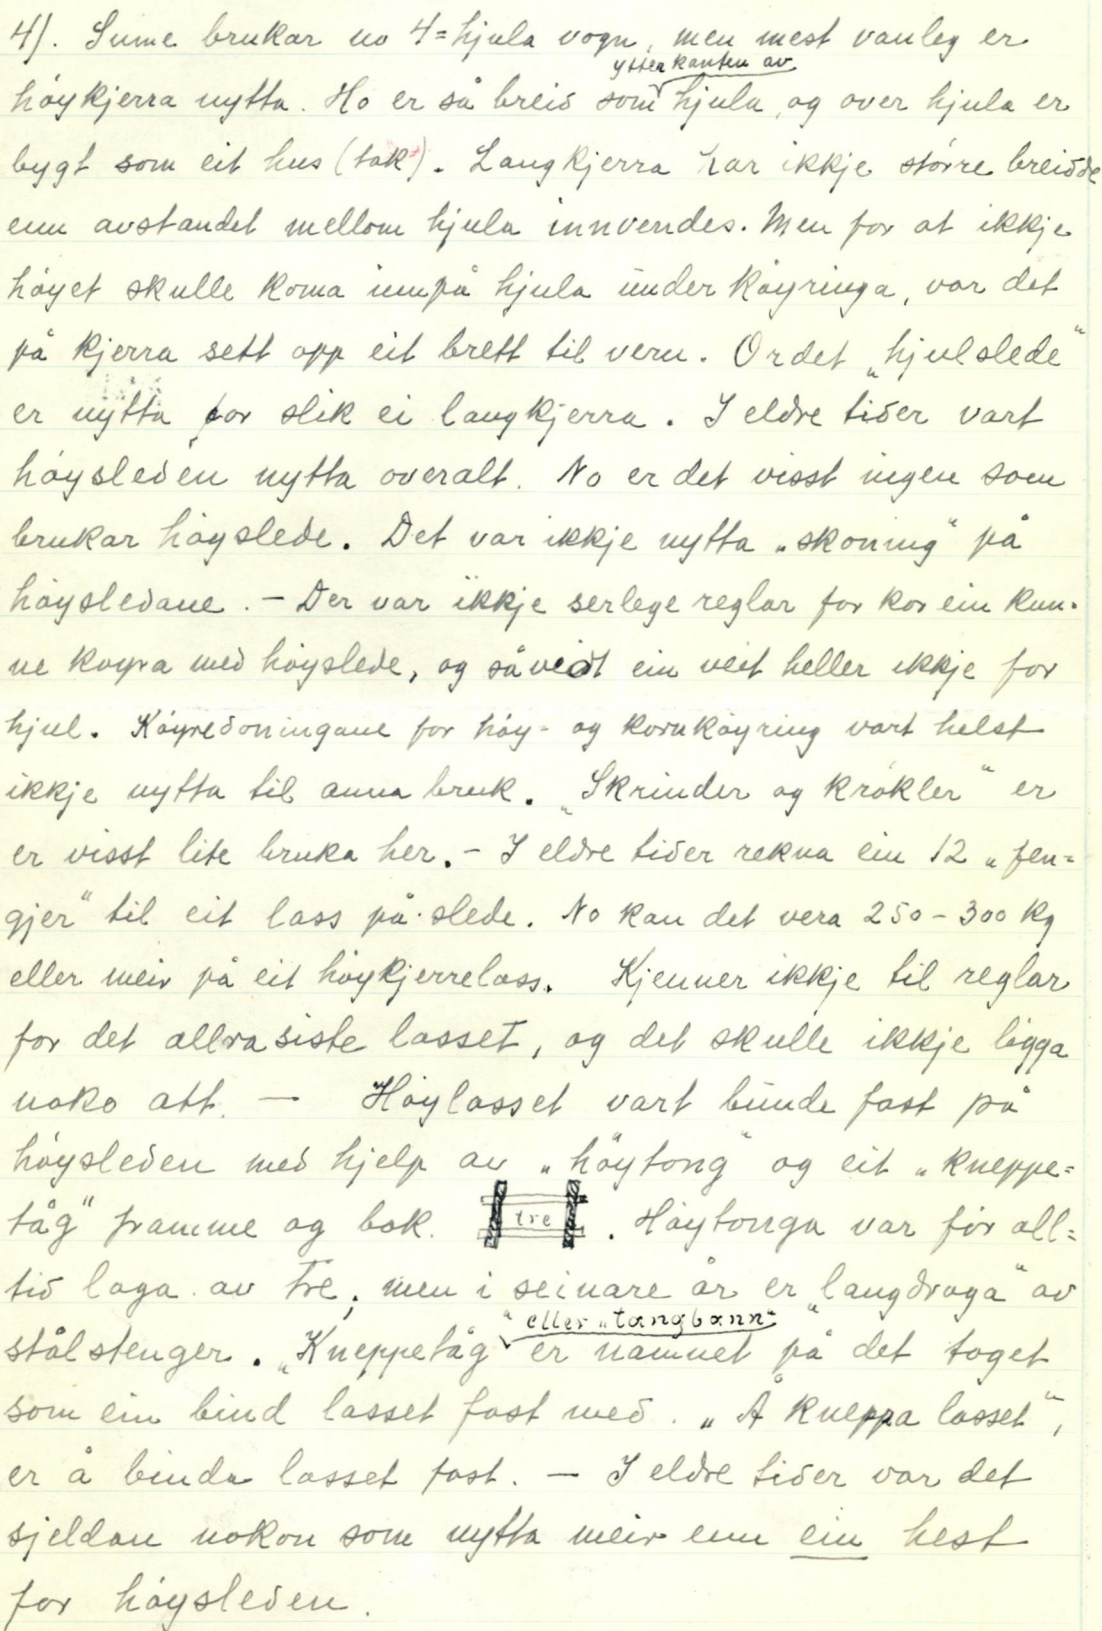 4). Sume brukar no 4=hjula vogn, men mest vanleg er
høykjerra nytta. Ho er så breid som ytterkanten av hjula, og over hjula er
bygt som eit hus (tak). Langkjerra har ikkje større breidde
enn avstandet mellom hjula innvendes. Men for at ikkje
høyet skulle koma innpå hjula under køyringa, var det
på kjerra sett opp eit brett til vern. Ordet „hjulslede“
er nytta for slik ei langkjerra. I eldre tider vart
høysleden nytta overalt. No er det visst ingen som
brukar høyslede. Det var ikkje nytta „skoning“ på
høysledane. – Der var ikkje serlege reglar for kor ein kun-
ne køyra med høyslede, og såveidt ein veit heller ikkje for
hjul. Køyredoningane for høy- og kornkøyring vart helst
ikkje nytta til anna bruk. „Skrinder og krøkler“ er
er visst lite bruka her. – I eldre tider rekna ein 12 „fen=
gjer“ til eit lass på slede. No kan det vera 250 – 300 kg
eller meir på eit høykjerrelass. Kjenner ikkje til reglar
for det allra siste lasset, og det skulle ikkje ligga
noko att. – Høylasset vart bunde fast på
høysleden med hjelp av „høytong“ og eit „kneppe=
tåg“ framme og bak. tre . Høytonga var før all=
tid laga av tre, men i seinare år er „langdraga“ av
stålstenger. „Kneppetåg“ eller „tangbann“ er namnet på det toget
som ein bind lasset fast med. „Å kneppa lasset“,
er å binda lasset fast. – I eldre tider var det
sjeldan nokon som nytta meir enn ein hest
for høysleden.